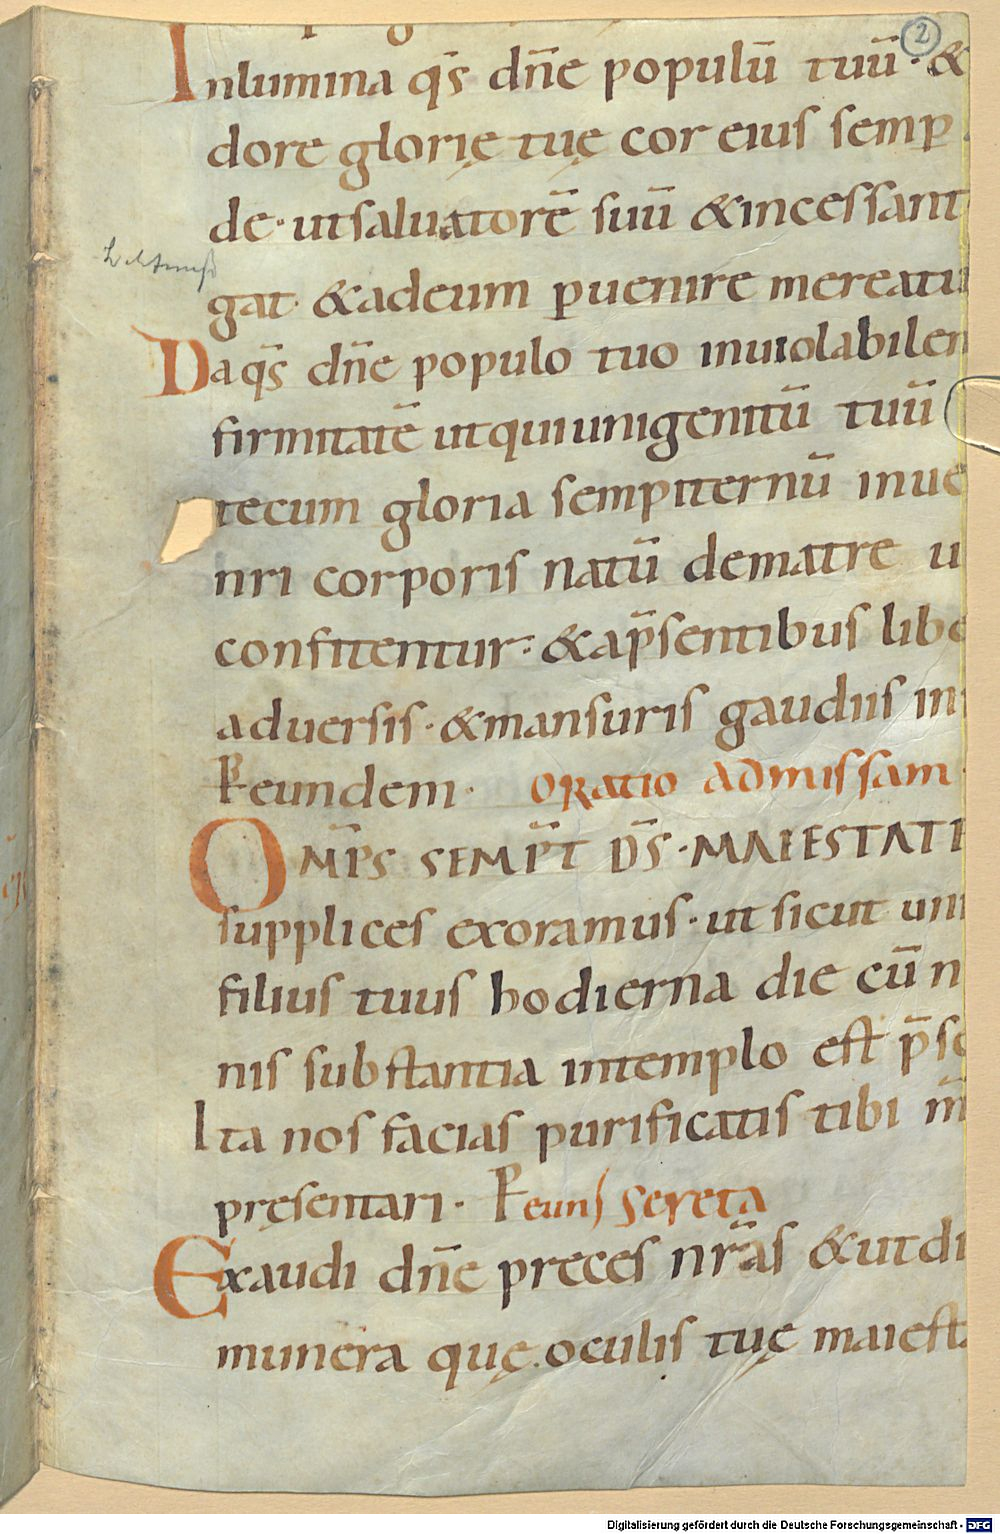 2
Inlumina qs̄ dn̄e populū tuū · &
dore glorię tuę cor eius semp̲
de · ut saluatorē suū & incessant
gat · & ad eum p̲uenire mereatu
Da qs̄ dn̄e populo tuo inuiolabilem
firmitatē ut qui unigenitū tuū
tecum gloria sempiternū in ue
nri corporis natū de matre u
confitentur · & a p̄sentibus libe
aduersis · & mansuris gaudiis in
P̲ eundem · ORATIO AD missam
OMP̄S SEMP̄T D̄S · MAIESTATE
supplices exoramus · ut sicut uni
filius tuus hodierna die cū n
nis substantia in templo est p̄se
Ita nos facias purificatis tibi m̄
pręsentari · P̲ eund Secreta
Exaudi dn̄e preces nr̄as & ut di
munera quę oculis tuę maiesta
Digitalisierung gefördert durch die Deutsche Forschungsgemeinschaft - DFG